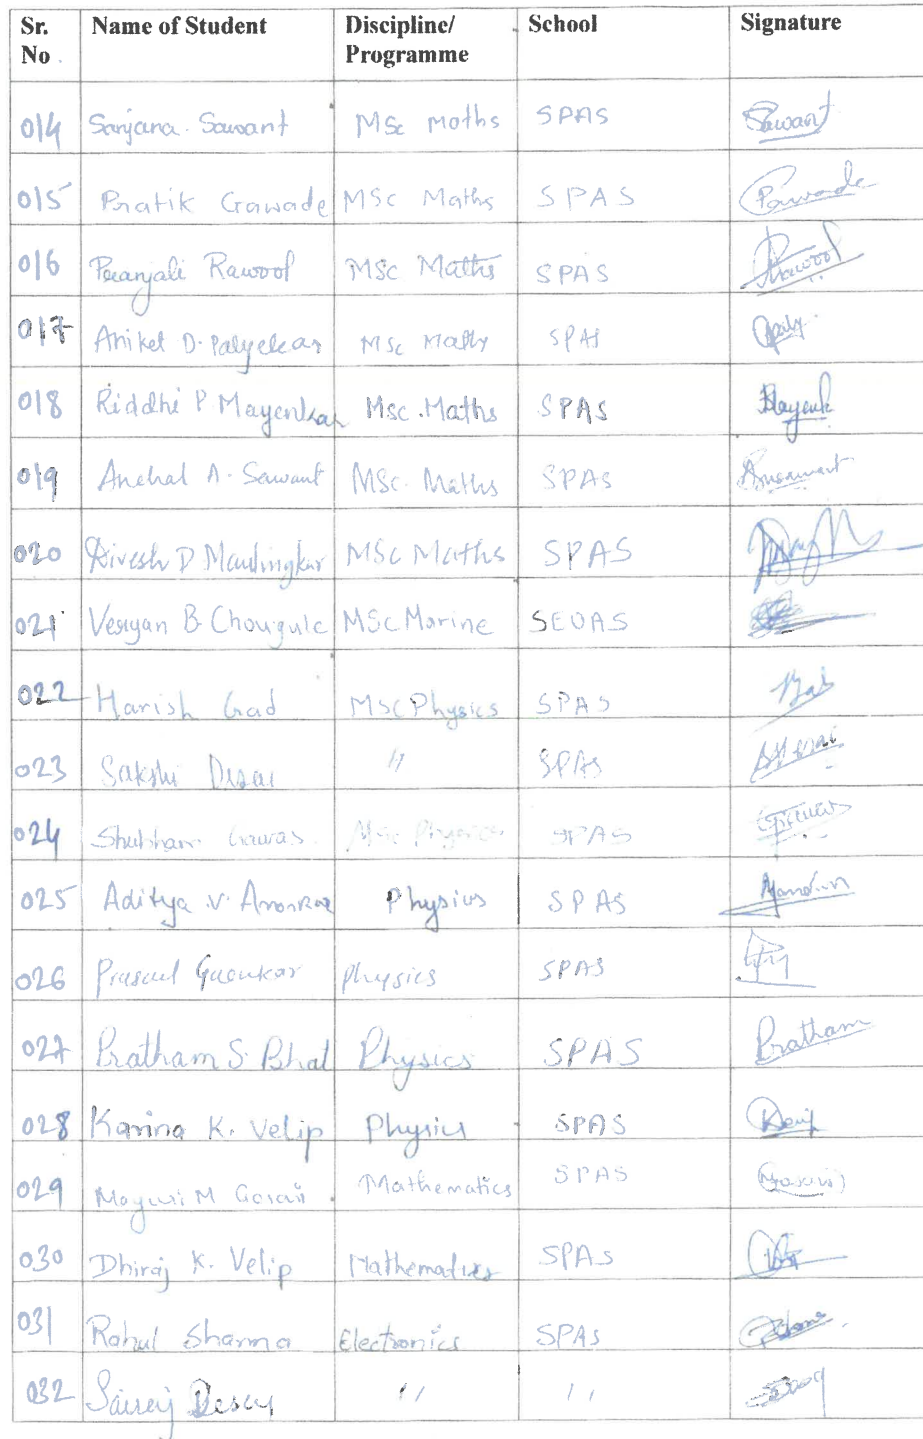 Sr. No Name of Student Discipline/ Programme School Signature
014 Sanjana Sawant MSc Maths SPAS Sawant
015 Pratik Gawade MSc Maths SPAS Gawade
016 Pranjali Rawool MSc Maths SPAS Rawool
017 Aniket D. Palyekar MSc Maths SPAS
018 Riddhi P Mayenkar Msc Maths SPAS
019 Anchal A. Sawant MSc. Maths SPAS
020 Divesh D Maulingkar MSc Maths SPAS
021 B. Chougule MSc Marine SEOAS
022 Harish Gad MSc Physics SPAS
023 Sakshi Desai " SPAS
024 Shubham Gawas Msc Physics SPAS
025 Aditya V. Amonkar Physics SPAS
026 Gaonkar Physics SPAS
027 Pratham S. Bhal Physics SPAS Pratham
028 Karina K. Velip Physics SPAS
029 Mayuri M Gosavi Mathematics SPAS
030 Dhiraj K. Velip Mathematics SPAS
031 Rahul Sharma Electronics SPAS
032 Sairaj Desai " "